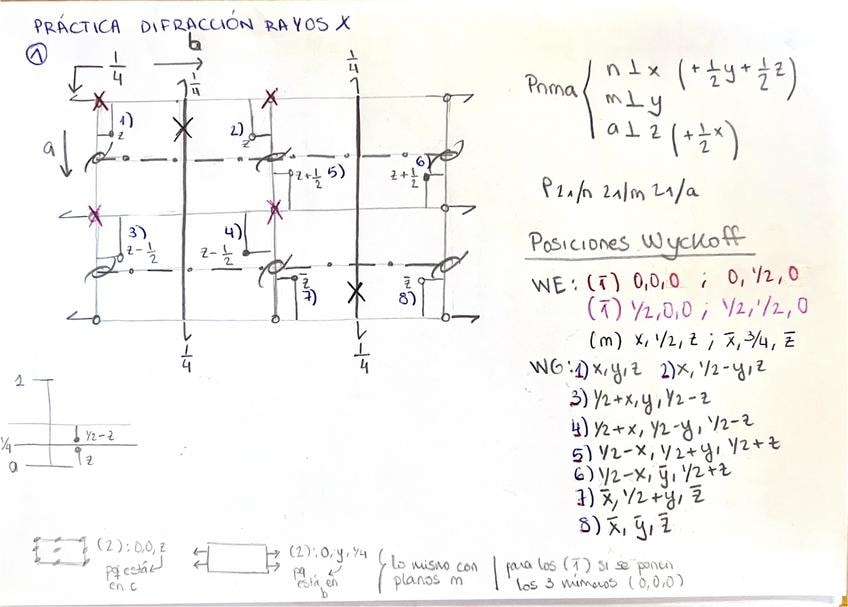 PRÁCTICA DIFRACCIÓN RAYOS X
1
1/4
b
1/4
1/4
a
1)
z
2)
z
z+1/2 5)
6)
z+1/2
3)
z-1/2
4)
z-1/2
z̄
7)
z̄
8)
1/4
1/4
Pnma { n⊥x (+1/2y+1/2z)
m⊥y
a⊥z (+1/2x)
P 21/n 21/m 21/a
Posiciones Wyckoff
WE: (1̄) 0,0,0 ; 0,1/2,0
(1̄) 1/2,0,0 ; 1/2,1/2,0
(m) x,1/2,z ; x̄,3/4,z̄
WG: 1) x,y,z 2) x,1/2-y,z
3) 1/2+x,y,1/2-z
4) 1/2+x,1/2-y,1/2-z
5) 1/2-x,1/2+y,1/2+z
6) 1/2-x,ȳ,1/2+z
7) x̄,1/2+y,z̄
8) x̄,ȳ,z̄
1
1/2-z
1/4
z
0
(2): 0,0,z
pq está
en c
(2): 0,y,1/4
pq
está en
b
{ lo mismo con
planos m
para los (1̄) si se ponen
los 3 números (0,0,0)